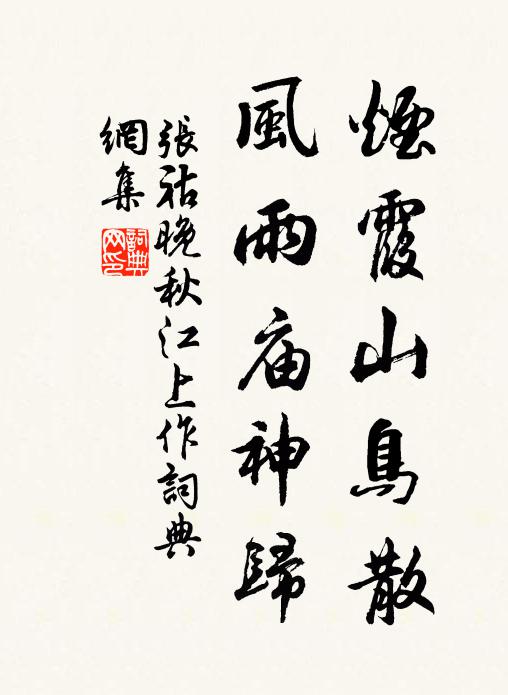 煙霞山鳥散
風雨庙神歸
張祜晚秋江上作詞典
網集
詞典
网印